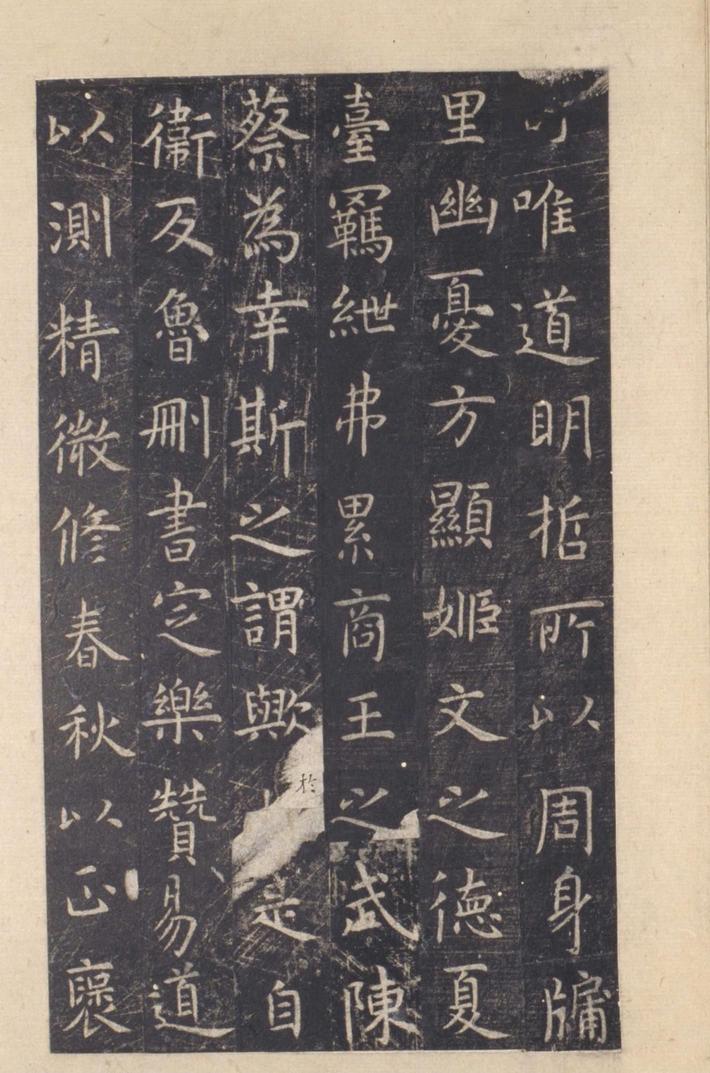 唯道明哲所以周身牖
里幽憂方顯姬文之德夏
臺羈紲弗累商王之武陳
蔡為幸斯之謂歟於是自
衛反魯刪書定樂贊易道
以測精微修春秋以正褒